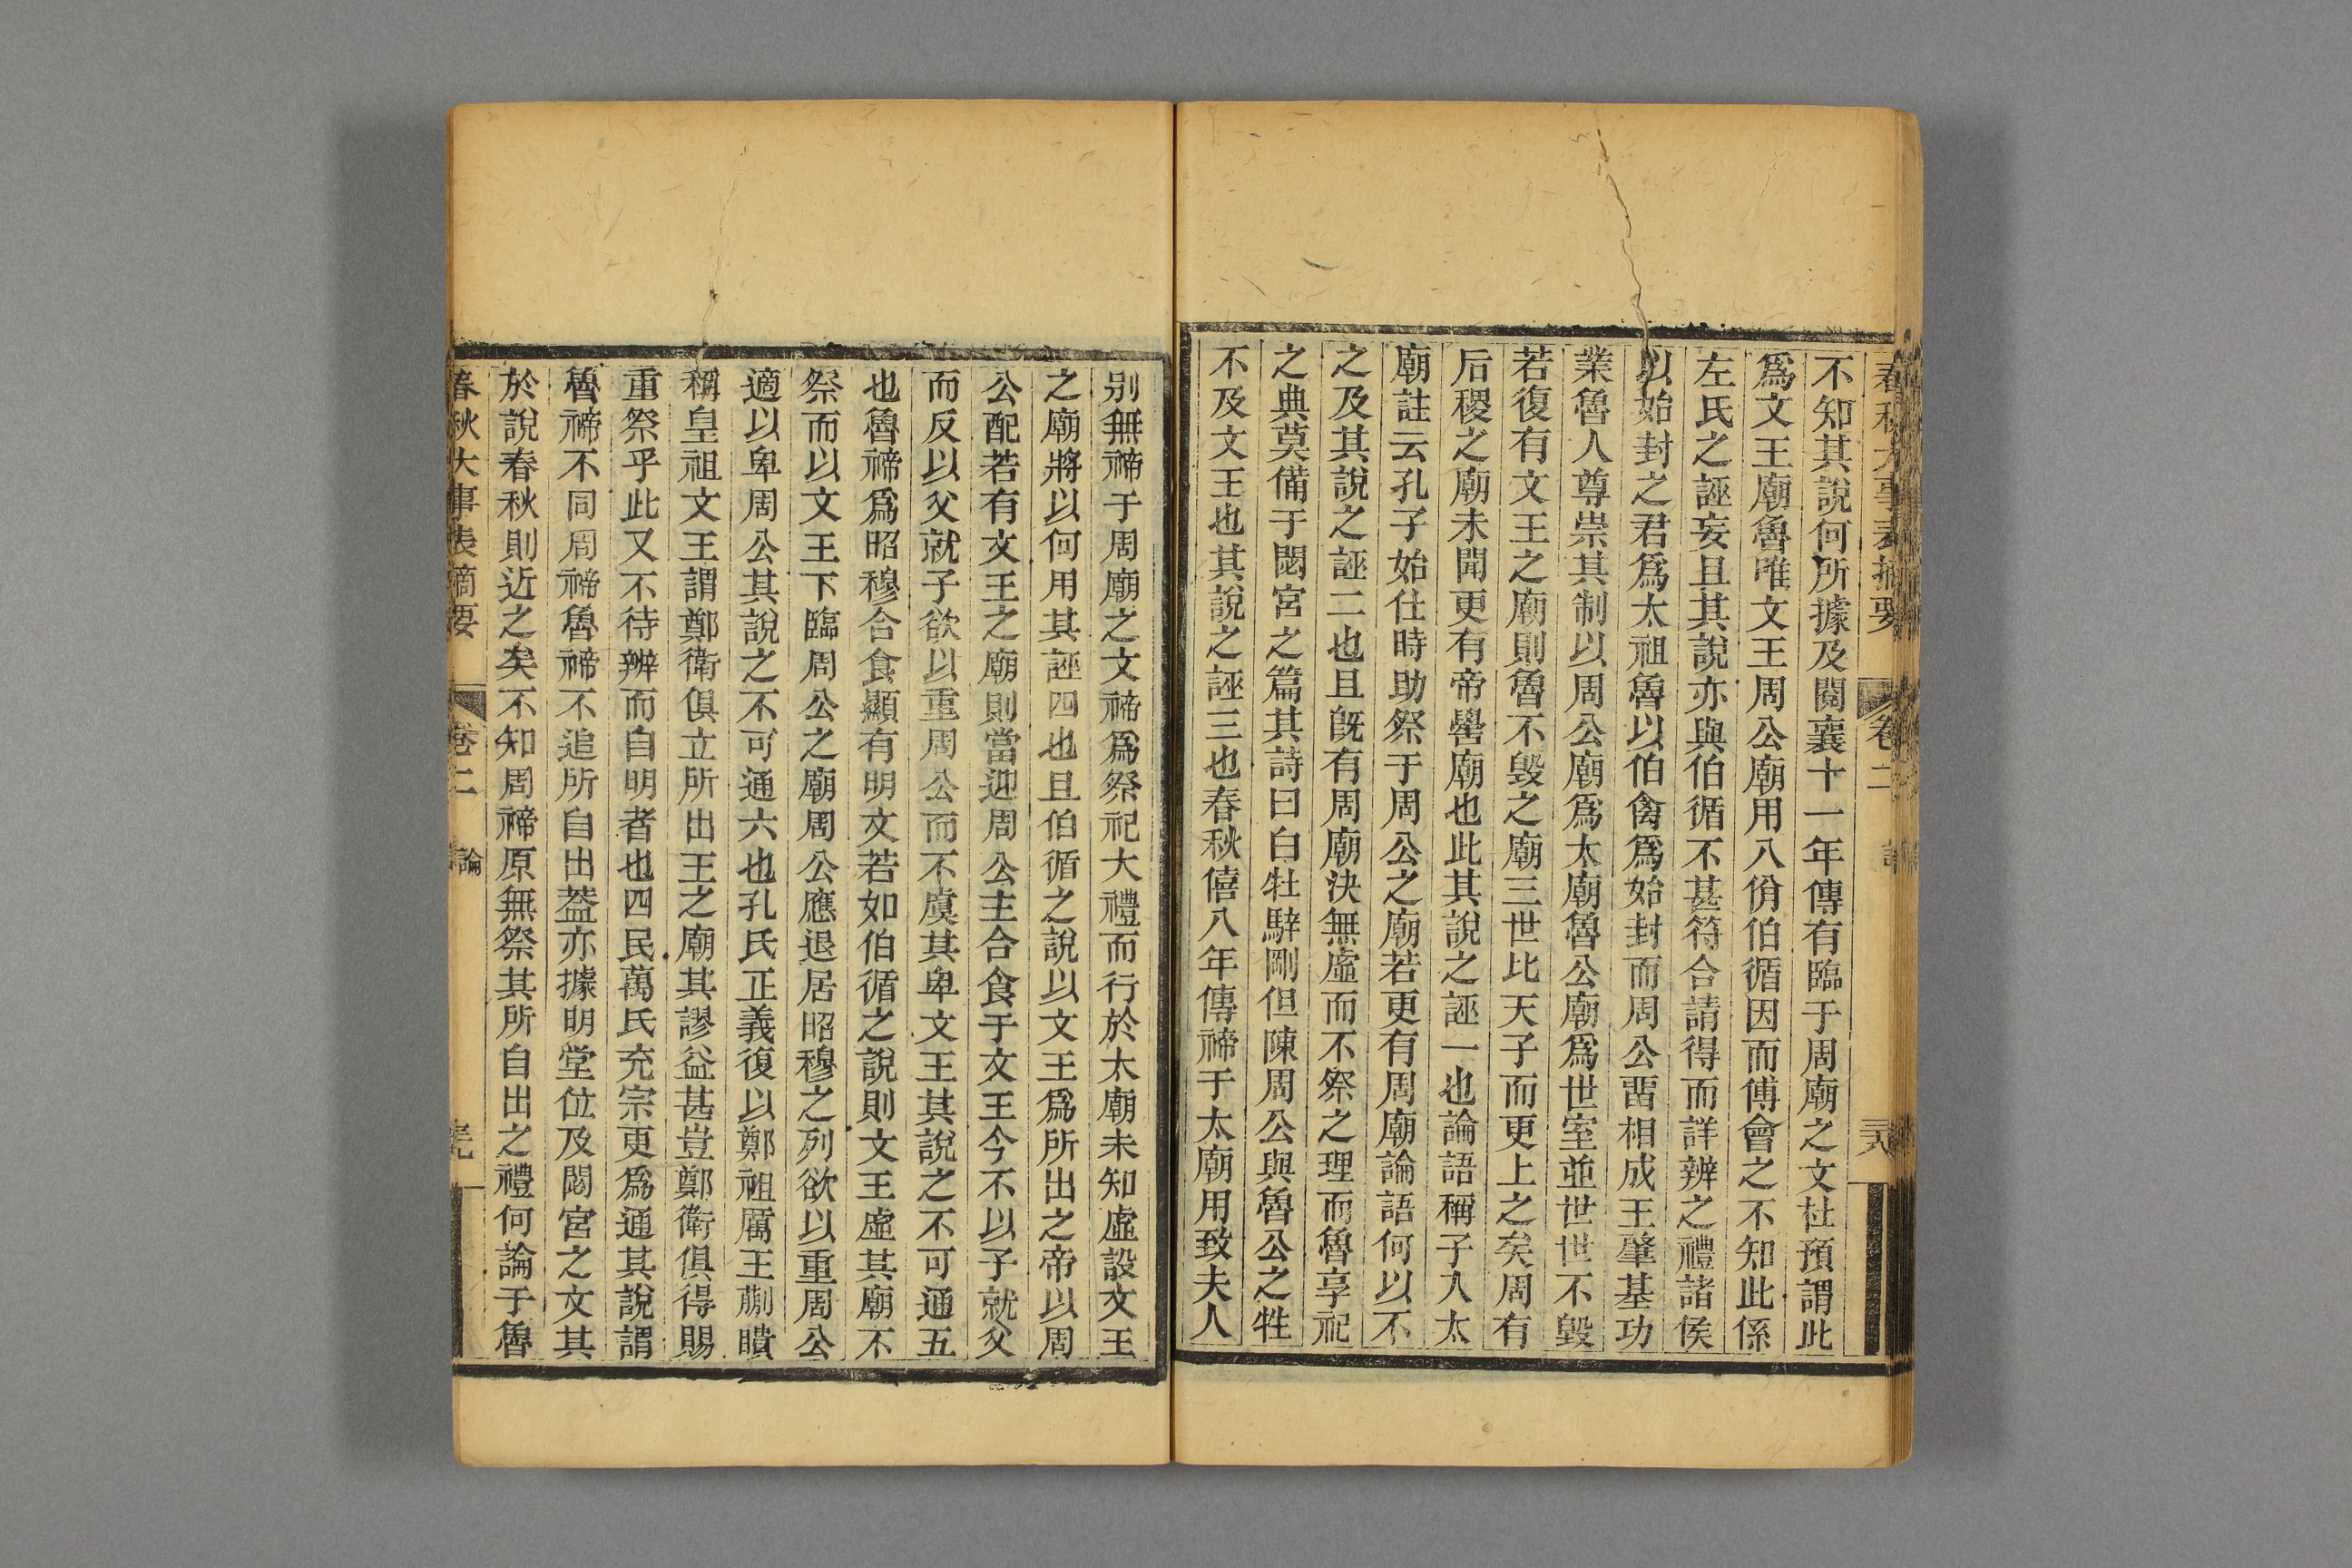 春秋大事表摘要 卷二 論 三八
不知其說何所據及閱襄十一年傳有臨于周廟之文杜預謂此
爲文王廟魯唯文王周公廟用八佾伯循因而傅會之不知此係
左氏之誣妄且其說亦與伯循不甚符合請得而詳辨之禮諸侯
以始封之君爲太祖魯以伯禽爲始封而周公畱相成王肇基功
業魯人尊崇其制以周公廟爲太廟魯公廟爲世室並世世不毀
若復有文王之廟則魯不毀之廟三世比天子而更上之矣周有
后稷之廟未聞更有帝嚳廟也此其說之誣一也論語稱子入太
廟註云孔子始仕時助祭于周公之廟若更有周廟論語何以不
之及其說之誣二也且旣有周廟決無虛而不祭之理而魯享祀
之典莫備于閟宮之篇其詩曰白牡騂剛但陳周公與魯公之牲
不及文王也其說之誣三也春秋僖八年傳禘于太廟用致夫人
别無禘于周廟之文禘爲祭祀大禮而行於太廟未知虛設文王
之廟將以何用其誣四也且伯循之說以文王爲所出之帝以周
公配若有文王之廟則當迎周公主合食于文王今不以子就父
而反以父就子欲以重周公而不虞其卑文王其說之不可通五
也魯禘爲昭穆合食顯有明文若如伯循之說則文王虛其廟不
祭而以文王下臨周公之廟周公應退居昭穆之列欲以重周公
適以卑周公其說之不可通六也孔氏正義復以鄭祖厲王蒯瞶
稱皇祖文王謂鄭衛俱立所出王之廟其謬益甚豈鄭衛俱得賜
重祭乎此又不待辨而自明者也四民萬氏充宗更爲通其說謂
魯禘不同周禘魯禘不追所自出葢亦據明堂位及閟宮之文其
於說春秋則近之矣不知周禘原無祭其所自出之禮何論于魯
春秋大事表摘要 卷二 論 三九